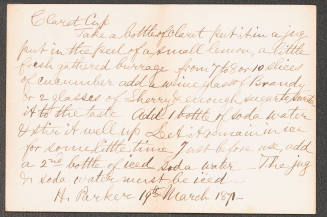 Claret Cup
Take a bottle of Claret put it in a jug
put in the peel of a small lemon, a little
fresh gathered burrage from 7 to 8 or 10 slices
of cucumber add a wine glass of Brandy
or 2 glasses of Sherry & enough sugar to
it to the taste Add 1 bottle of soda water
& stir it well up Let it remain in ice
for some little time Just before use, add
a 2nd bottle of iced soda water The jug
& soda water must be iced
H. Parker 19th March 187